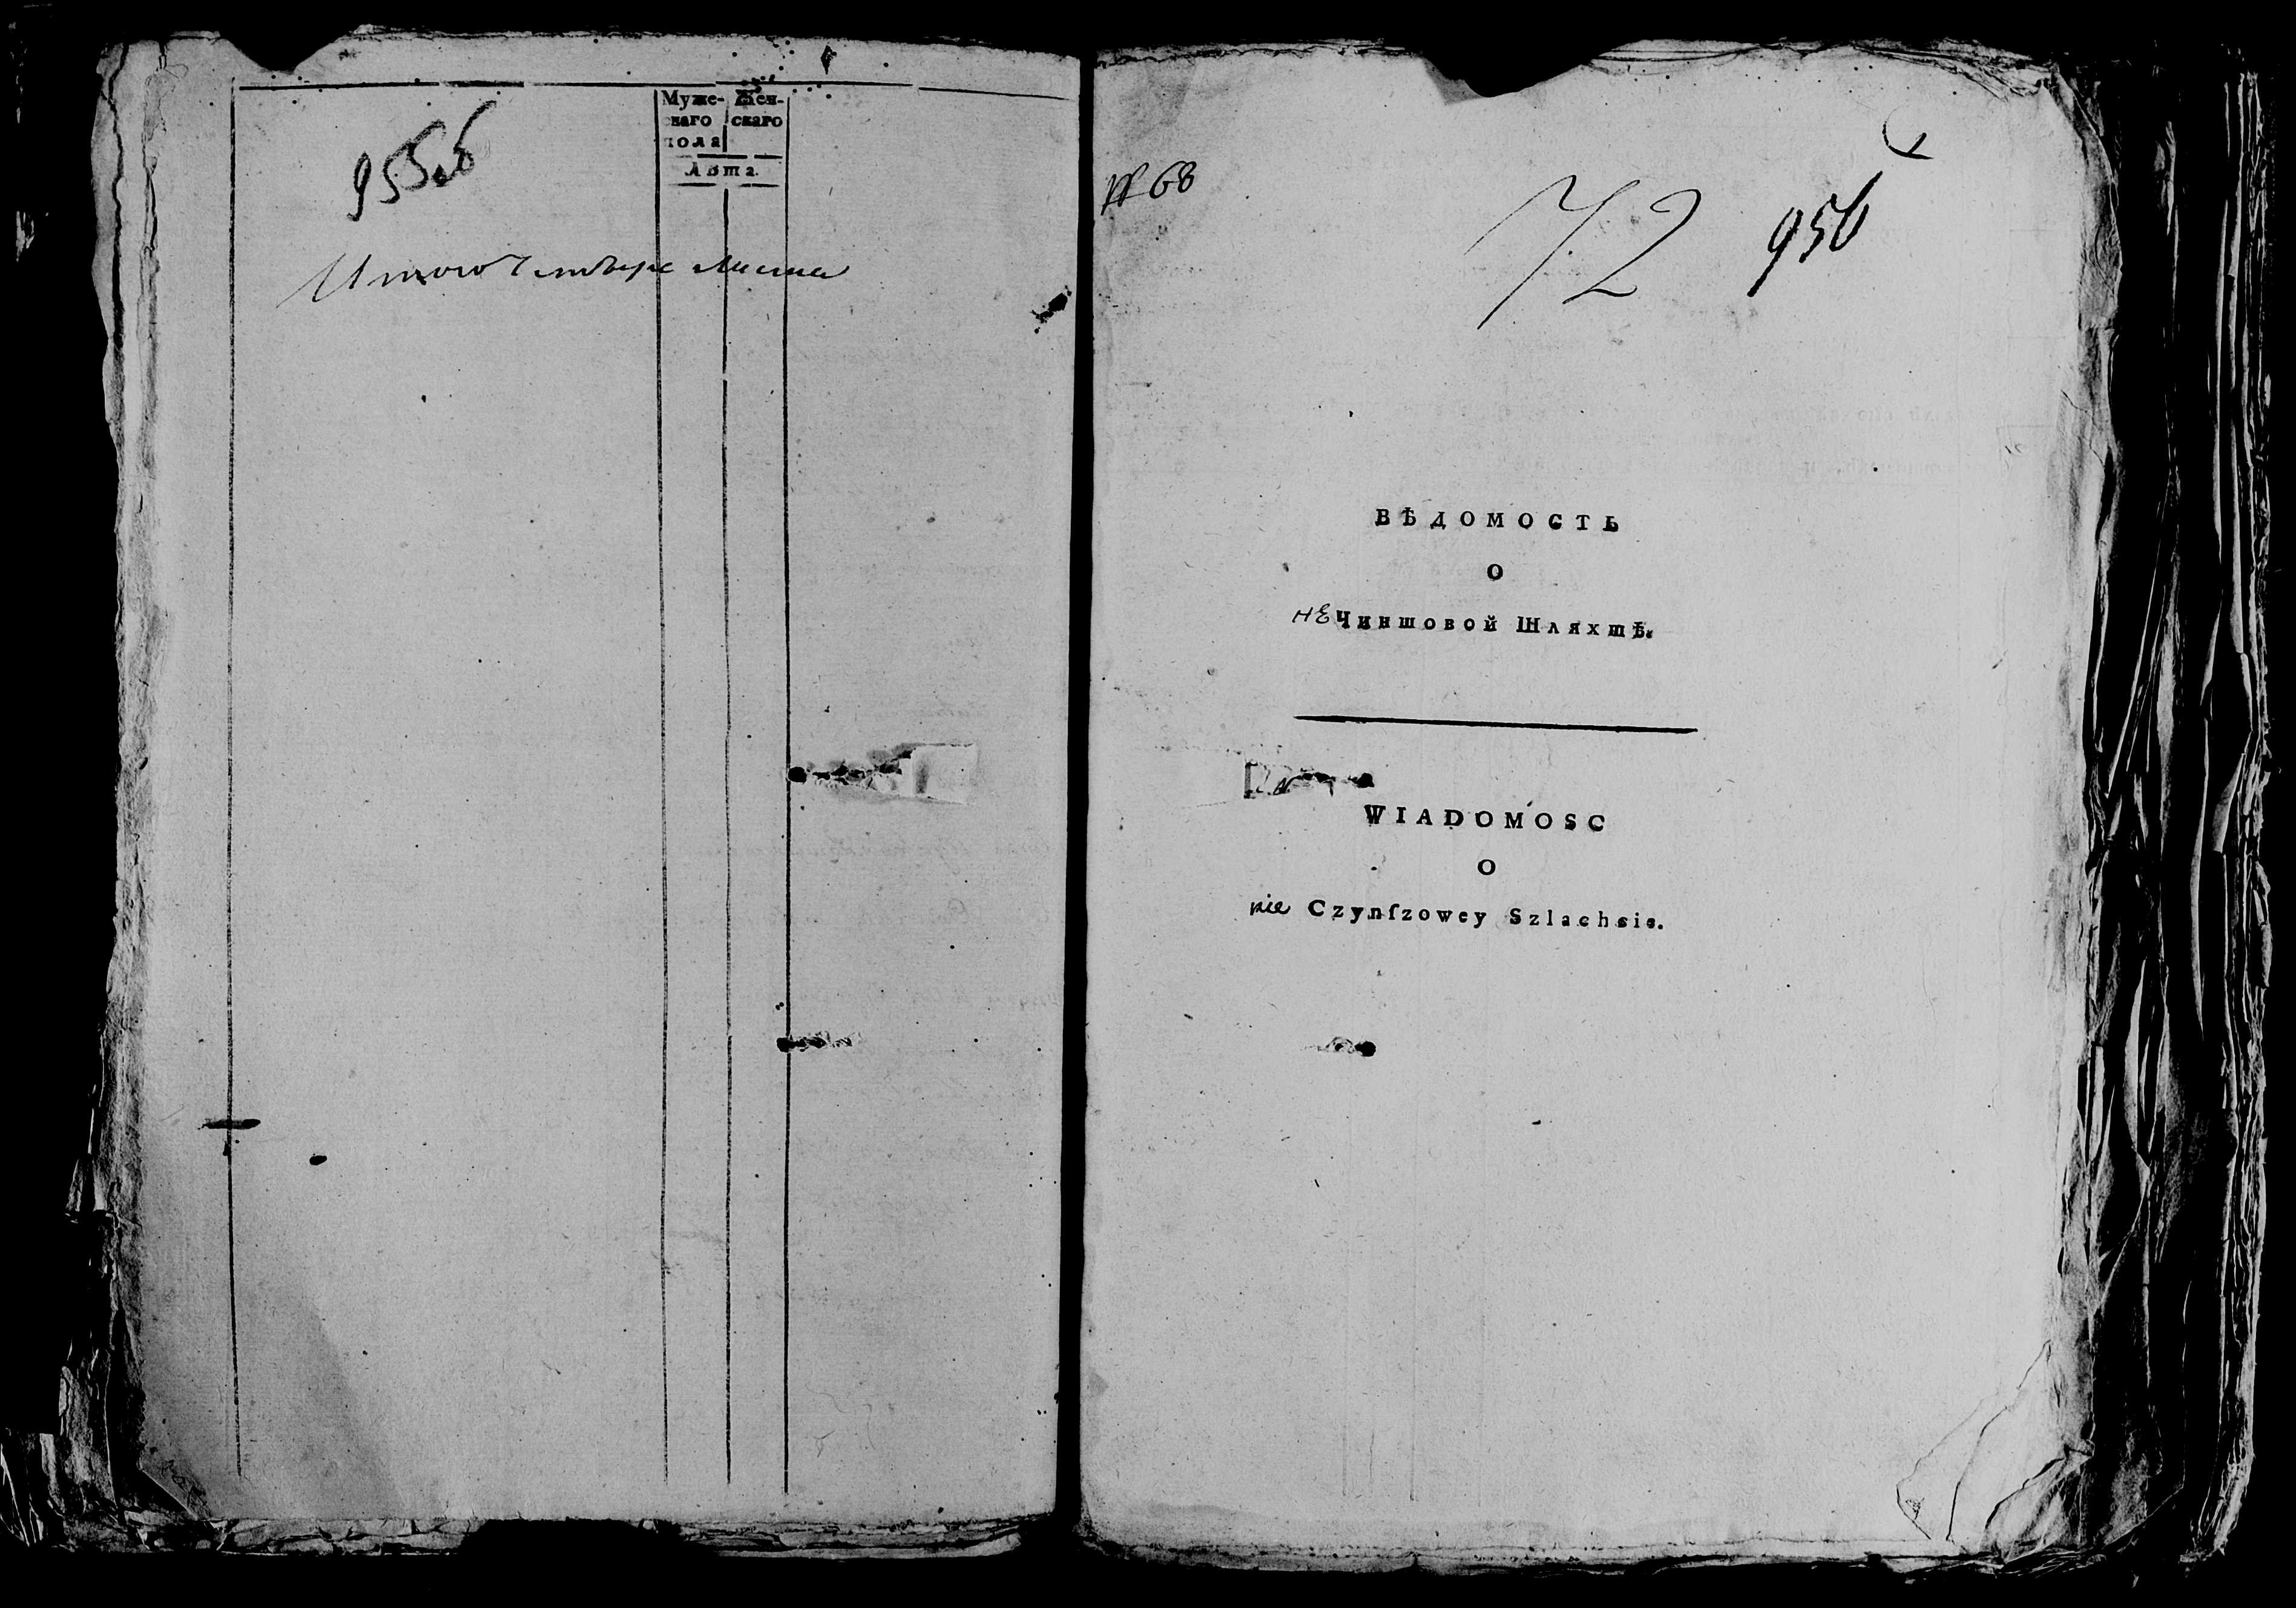 955об
Муже- Жен-
скаго скаго
пола
Лѣта.
Итого четыре листа
№ 68
72
956
ВѢДОМОСТЬ
О
не Чиншовой Шляхтѣ.
WIADOMOSC
O
nie Czynſzowey Szlachcie.